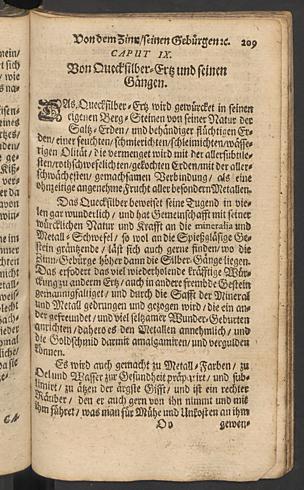 Von dem Zinn/seinen Gebürgen ꝛc. 209
CAPUT IX.
Von Quecksilber-Ertz und seinen
Gängen.
DAs Quecksilber-Ertz wird gewürcket in seinen
eigenen Berg-Steinen von seiner Natur der
Saltz-Erden / und behändiger flüchtigen Er-
den/ einer feuchten/schmierichten/schleimichten/wässe-
rigen Olität/ die vermenget wird mit der allersubtile-
sten/rothschwefelichten/gekochten Erden/mit der aller-
schwächesten/ gemachsamen Verbindung/ als eine
ohnzeitige angenehme Frucht aller besondern Metallen.
Das Quecksilber beweiset seine Tugend in vie-
len gar wunderlich / und hat Gemeinschafft mit seiner
würcklichen Natur und Krafft an die mineralia und
Metall-Schwefel / so wol an die Spießglasige Ge-
stein gräntzende / läst sich auch gerne finden/ wo die
Zinn-Gebürge höher dann die Silber-Gänge liegen.
Das erfodert das viel wiederholende kräfftige Wür-
ckung zu anderm Ertz / auch in andere frembde Gestein
/ und durch die Safft der Mineral
und Metall gedrungen und gezogen wird / die ein an-
der gefreundet / und viel seltzamer Wunder-Geburten
anrichten / dahero es den Metallen annehmlich / und
die Goldschmid darmit amalgamiren / und vergulden
können.
Es wird auch gemacht zu Metall-Farben / zu
Oel und Wasser zur Gesundheit præparirt / und sub-
limirt / zu ätzen der ärgste Gifft / und ist ein rechter
Rauber / den er auch gern von ihn nimmt und mit
ihm führet / was man für Mühe und Unkosten an ihm
Oo gewen-